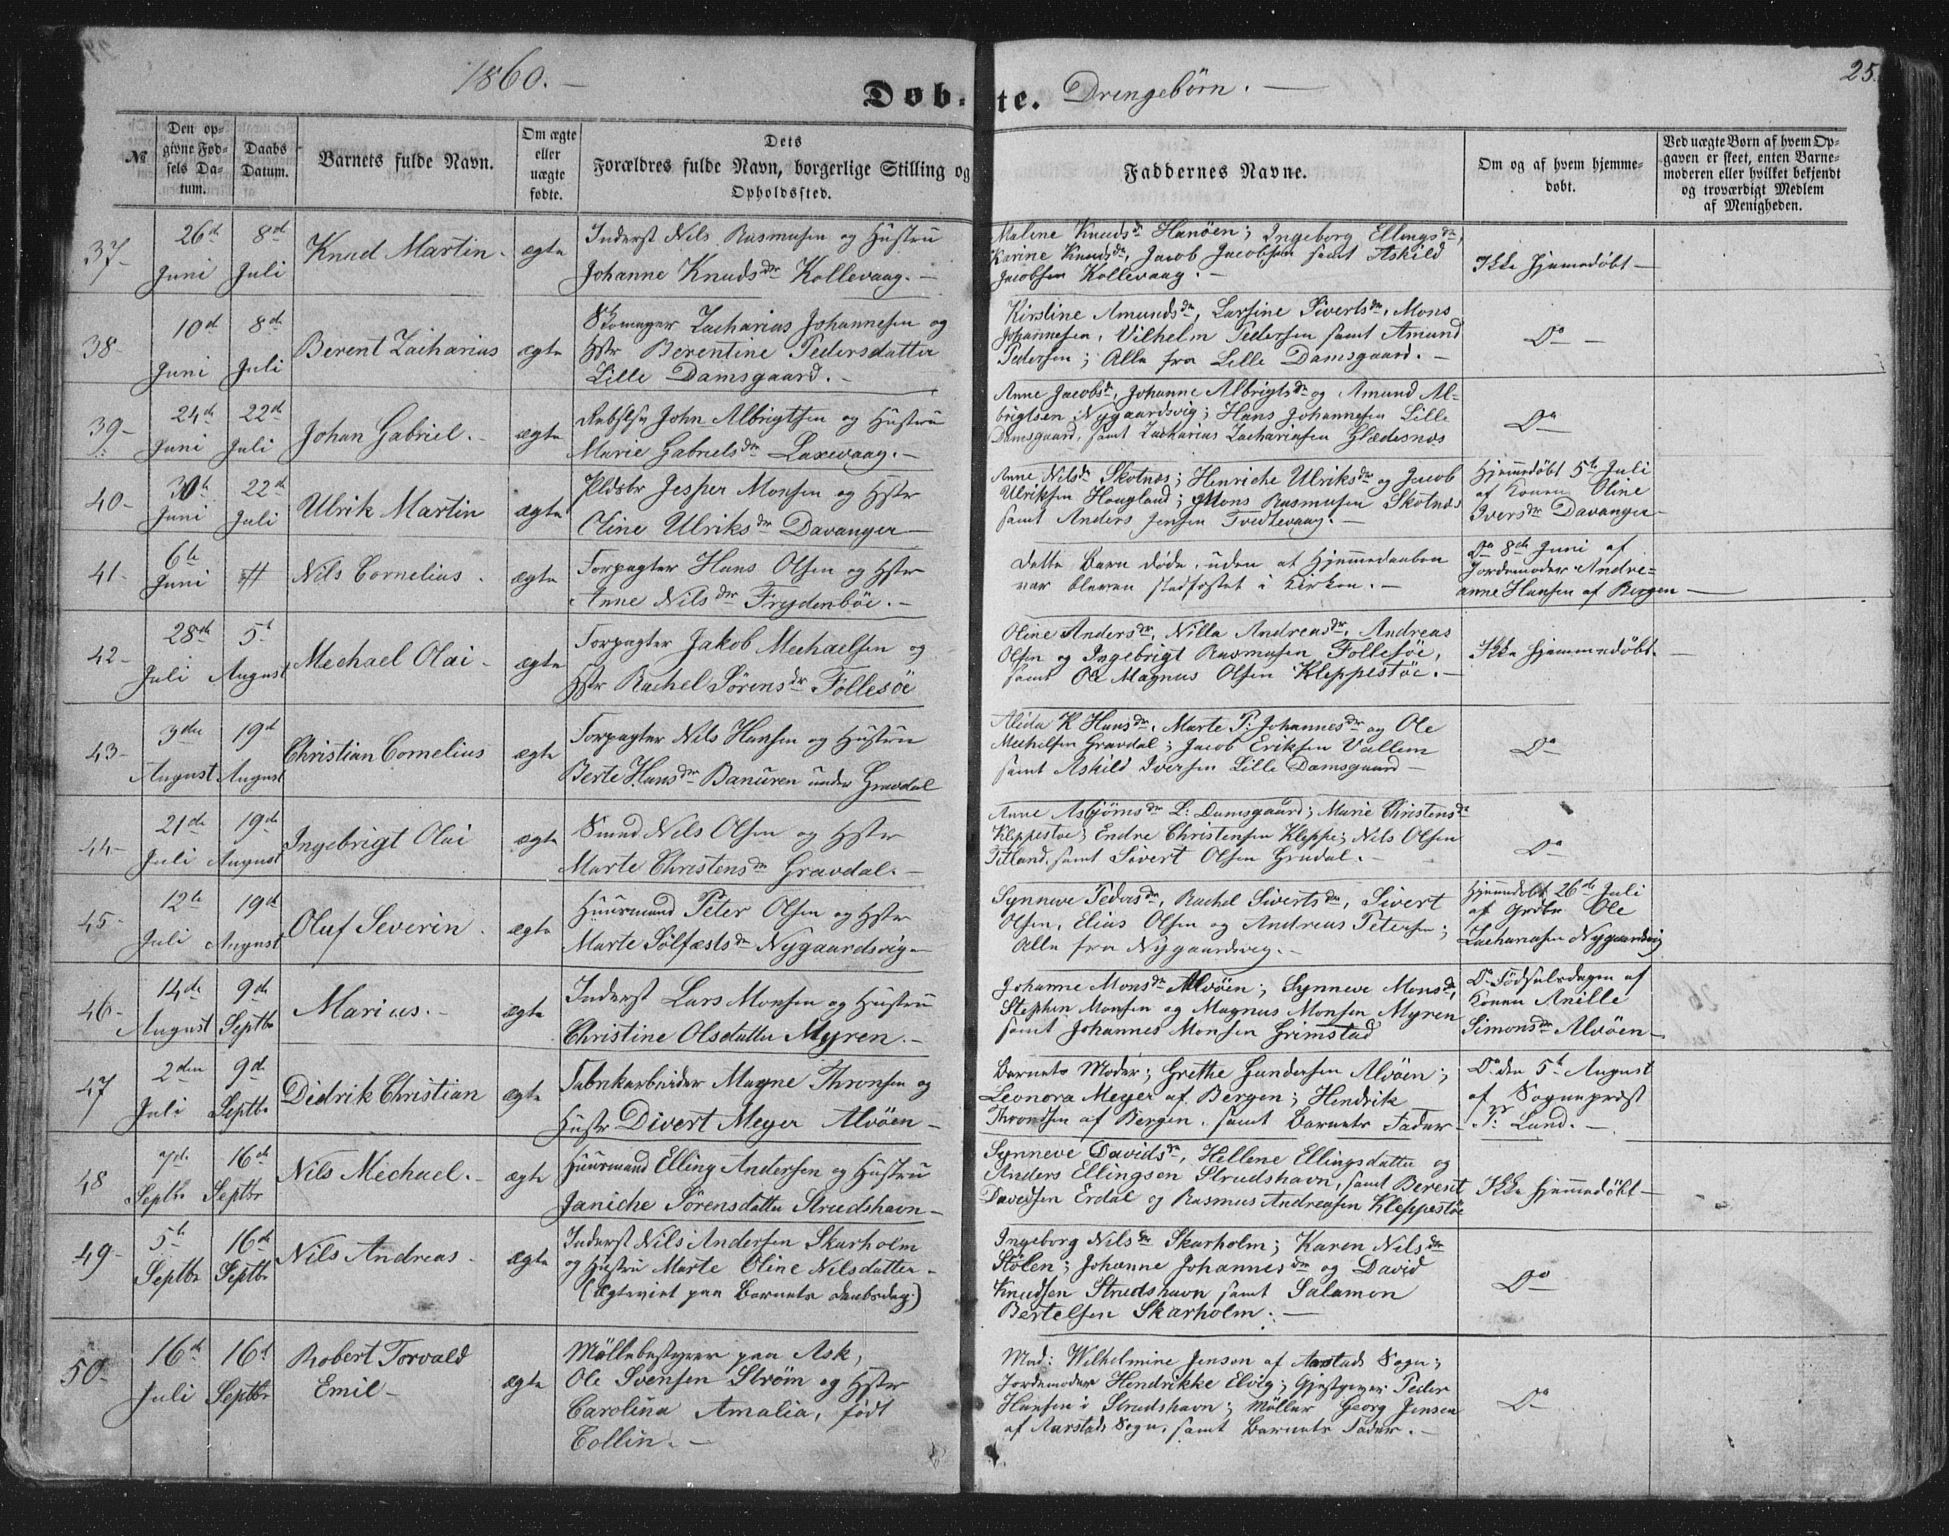 1860. —
Døb-te. Drengebørn. —
25.
№
Den opgivne Fødsels Datum.
Daabs Datum.
Barnets fulde Navn.
Om ægte eller uægte fødte.
Dets Forældres fulde Navn, borgerlige Stilling og Opholdssted.
Faddernes Navne.
Om og af hvem hjemmedøbt.
Ved uægte Børn af hvem Opgaven er skeet, enten Barnemoderen eller hvilket bekjendt og troværdigt Medlem af Menigheden.
37- 26d Juni 8d Juli Knud Martin. ægte
Inderst Nils Rasmusen og Hustru
Johanne Knudsdr Kollevaag. —
Malene Knudsdr Hanøen; Ingeborg Ellingsdr,
Karine Knudsdr, Jacob Jacobsen samt Askild
Jacobsen Kollevaag. —
Ikke hjemmedøbt —
38- 10d Juni 8d Juli Berent Zacharias ægte
Skomager Zacharias Johannesen og
Hstr Berentine Pedersdatter
Lille Damsgaard. —
Kirstine Amundsdr, Larsine Sivertsdr, Mons
Johannesen, Vilhelm Pedersen samt Amund
Pedersen; Alle fra Lille Damsgaard. —
Do —
39- 24d Juni 22d Juli Johan Gabriel. — ægte
John Albrigtsen og Hustru
Marie Gabrielsdr Laxevaag. —
Anne Jacobsdr, Johanne Albrigtsdr og Amund Al-
brigtsen Nygaardsvig; Hans Johannesen Lille
Damsgaard, samt Zacharias Zachariasen Glædesnes
Do
40- 30te Juni 22d Juli Ulrik Martin ægte
Pldsbr Jesper Monsen og Hstr
Oline Ulriksdr Davanger
Anne Nilsdr Skotnes; Henriche Ulriksdr og Jacob
Ulriksen Hougland; Mons Rasmusen Skotnes
samt Anders Jensen Tvedtevaag. —
Hjemmedøbt 5te Juli
af Konen Oline
Iversdr Davanger —
41- 6te Juni # Nils Cornelius. ægte
Forpagter Hans Olsen og Hstr
Anne Nilsdr Frydenbøe. —
Dette Barn døde, uden at Hjemmedaaben
var bleven stadfæstet i Kirken. —
Do 8de Juni af
Jordemoder Andre-
anne Hansen af Bergen —
42- 28de Juli 5te August Mechael Olai - ægte
Forpagter Jakob Mechaelsen og
Hstr Rachel Sørensdr Follesøe
Oline Andersdr, Nilla Andreasdr, Andreas
Olsen og Ingebrigt Rasmusen Follesøe,
samt Ole Magnus Olsen Kleppestøe. —
Ikke hjemmedøbt. —
43- 3den August 19de August Christian Cornelius ægte
Forpagter Nils Hansen og Hustru
Berte Hansdr Banüren under Gravdal
Alida K Hansdr, Marte P: Johannesdr og Ole
Mechelsen Gravdal; Jacob Eriksen Vallem
samt Askild Iversen Lille Damsgaard —
Do
44- 21de Juli 19de August Ingebrigt Olai ægte
Smed Nils Olsen og Hstr
Marte Christensdr Gravdal. —
Anne Asbjørnsdr L: Damsgaard; Marie Christensdr
Kleppestøe; Endre Christensen Kleppe; Nils Olsen
Titland, samt Sivert Olsen Grudal. —
Do
45- 12te Juli 19d August Oluf Severin. ægte
Huusmand Peter Olsen og Hstr
Marte Sølfæstsdr Nygaardsvig —
Synneve Pedersdr, Rachel Sivertsdr, Sivert
Olsen, Elias Olsen og Andreas Petersen;
Alle fra Nygaardsvig. —
Hjemmedøbt 26de Juli
af Grdbr Ole
Zachariasen Nygaardsvig
46- 14de August 9de Septbr Marius. — ægte
Inderst Lars Monsen og Hustru
Christine Olsdatter Myren. —
Johanne Monsdr Alvøen; Synneve Monsdr,
Stephen Monsen og Magnus Monsen Myren
samt Johannes Monsen Grimstad
Do Fødselsdagen af
Konen Anille
Simonsdr Alvøen —
47 2den Juli 9de Septbr Didrik Christian ægte
Fabrikarbeider Magne Thronsen og
Hustr Divert Meyer Alvøen —
Barnets Moder; Grethe Gundersen Alvøen;
Leonora Meyer af Bergen; Hendrik
Throndsen af Bergen, samt Barnets Fader —
Do den 5te August
af Sognepræst
Lund. —
48 7de Septbr 16de Septbr Nils Mechael. — ægte
Huusmand Elling Andersen og Hustru
Janiche Sørensdatter Strudshavn —
Synneve Davidsdr, Hellene Ellingsdatter og
Anders Ellingsen Strudshavn, samt Berent
Davidsen Erdal og Rasmus Andreasen Kleppestøe
Ikke hjemmedøbt —
49- 5te Septbr 16de Septbr Nils Andreas. ægte
Inderst Nils Andersen Skarholm
og Hustru Marte Oline Nilsdatter. —
(Ægteviet paa Barnets Daabsdag.)
Ingeborg Nilsdr Skarholm; Karen Nilsdr
Stølen; Johanne Johannesdr og David
Knudsen Strudshavn samt Salamon
Bertelsen Skarholm. —
Do
50- 16de Juli 16d Septbr Robert Torvald
Emil — ægte
Møllebestyrer paa Ask,
Ole Svensen Strøm og Hstr
Carolina Amalia, født
Collin. —
Mad: Wilhelmine Jenson af Aarstads Sogn;
Jordemoder Hendrikke Elvig; Gjestgiver Peder
Hansen i Strudshavn; Møller Georg Jensen
af Aarstads Sogn, samt Barnets Fader. —
Do